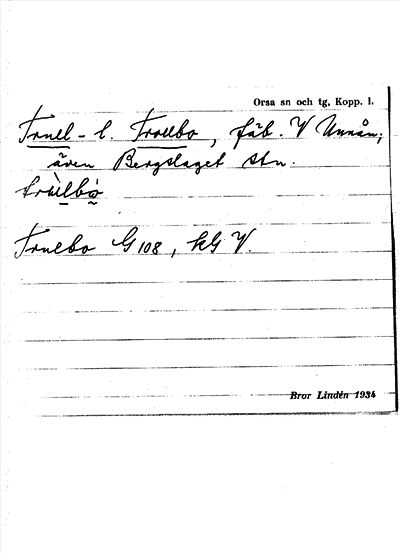 Orsa sn och tg, Kopp. l.
Truel- l. Trollbo, fäb. V Unnån;
även Bergslaget stn.
Truebo G 108, kG V.
Bror Lindén 1934